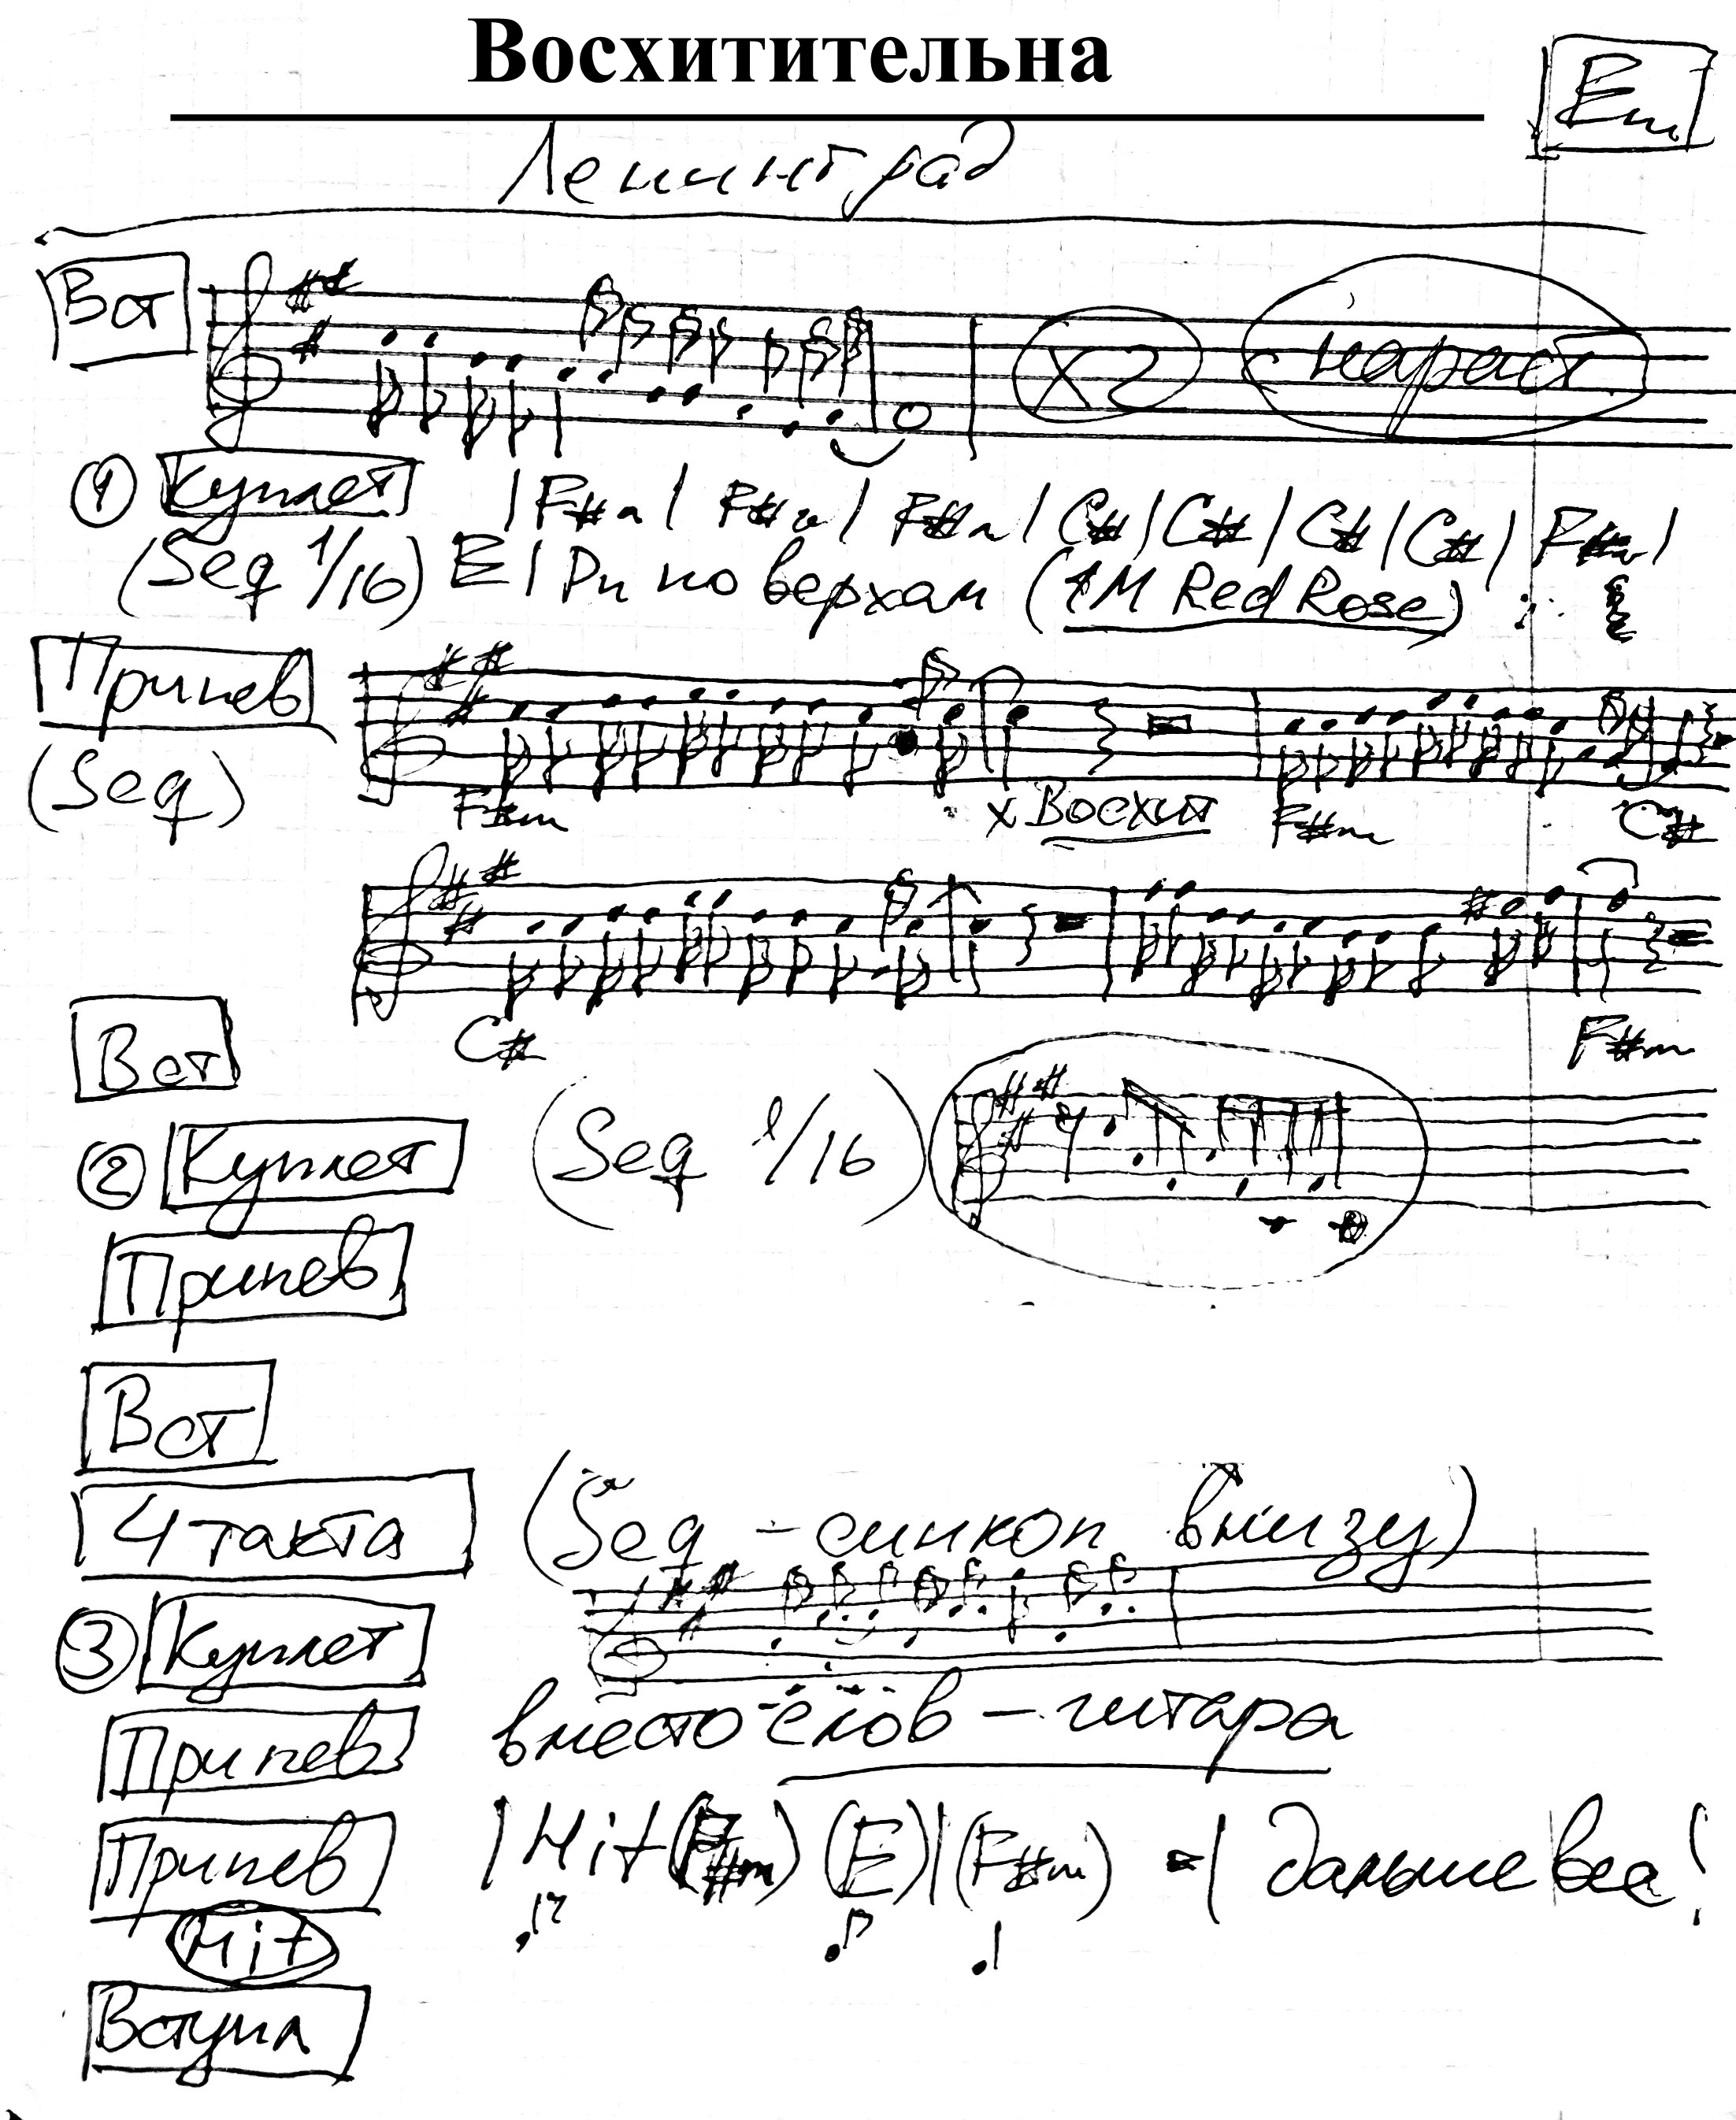 Восхитительна
Em
Ленинград
Вст
X2 нараст
1 Куплет | F#m | F#m | F#m | C# | C# | C# | C# | F#m |
(Seq 1/16) E/Pn по верхам (1M Red Rose)
Припев
(Seq)
F#m x Восхит F#m C#
C# F#m
Вст
2 Куплет (Seq 1/16)
Припев
Вст
4 такта (Seq - синкоп внизу)
3 Куплет
Припев вместо слов - гитара
Припев | Hit (F#m) (E) | (F#m) - | дальше все!
Hit
Вступл